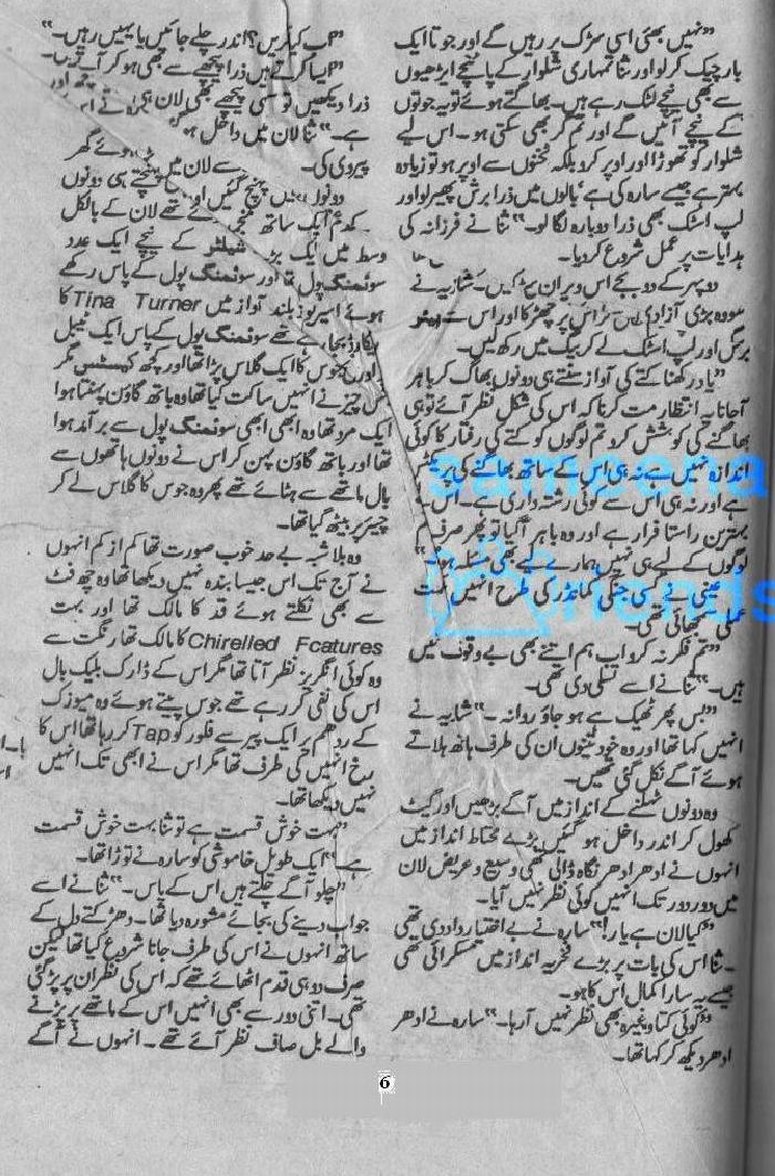 ”نہیں بھئی اسی سڑک پر رہیں گے اور جو تا ایک
بار چیک کر لو اور ثنا تمہاری شلوار کے پائنچے ایڑھیوں
سے بھی نیچے لٹک رہے ہیں۔ بھاگتے ہوئے تو یہ جوتوں
کے نیچے آئیں گے اور تم گر بھی سکتی ہو۔ اس لیے
شلوار کو تھوڑا اور اوپر کرو بلکہ ٹخنوں سے اوپر ہو تو زیادہ
بہتر ہے جیسے سارہ کی ہے بالوں میں ذرا برش پھیر لو اور
لپ اسٹک بھی ذرا دوبارہ لگا لو۔“ ثنا نے فرزانہ کی
ہدایات پر عمل شروع کر دیا۔
دوپہر کے دو بجے اس ویران سڑک شائبہ نے
وہ بڑی آزادی سے اس پر چھڑکا اور اس سے
برش اور لپ اسٹک لے کر بیگ میں رکھ لیں۔
”یاد رکھنا کتے کی آواز سنتے ہی دونوں بھاگ کر باہر
آ جانا یہ انتظار مت کرنا کہ اس کی شکل نظر آئے تو ہی
بھاگنے کی کوشش کرو تم لوگوں کو کتے کی رفتار کا کوئی
اندازہ نہیں ہے نہ ہی اس کے ساتھ بھاگنے کی پریکٹس
ہے اور نہ ہی اس سے کوئی رشتہ داری ہے۔ اس
بہترین راستا فرار ہے اور وہ باہر آ گیا تو پھر صرف تم
لوگوں کے لیے ہی نہیں ہمارے لیے بھی مسئلہ ہو گا“
عینی نے کسی جنگی کمانڈر کی طرح انہیں حکمت
عملی سمجھائی تھی۔
”تم فکر نہ کرو اب ہم اتنے بھی بے وقوف نہیں
ہیں۔“ ثنا نے اسے تسلی دی تھی۔
”بس پھر ٹھیک ہے ہو جاؤ روانہ۔“ شائبہ نے
انہیں کہا تھا اور وہ خود تینوں ان کی طرف ہاتھ ہلاتے
ہوئے آگے نکل گئی تھیں۔
وہ دونوں ٹہلنے کے انداز میں آگے بڑھیں اور گیٹ
کھول کر اندر داخل ہو گئیں بڑے محتاط انداز میں
انہوں نے ادھر ادھر نگاہ ڈالی تھی وسیع و عریض لان
میں دور دور تک انہیں کوئی نظر نہیں آیا۔
”کیا لان ہے یار!“ سارہ نے بے اختیار داد دی تھی
۔ ثنا اس کی بات پر بڑے فخریہ انداز میں مسکرائی تھی
جیسے یہ سارا کمال اس کا ہو۔
”کوئی کتا وغیرہ بھی نظر نہیں آ رہا۔“ سارہ نے ادھر
ادھر دیکھ کر کہا تھا۔
”اب کیا کریں؟ اندر چلے جائیں یا یہیں رہیں۔“
”ایسا کرتے ہیں ذرا پیچھے سے بھی ہو کر آتے ہیں۔
ذرا دیکھیں تو سہی پیچھے بھی لان ہی
ہے۔“ ثنا لان میں داخل
پیروی کی۔ سے لان میں ہوئے گھر
دونوں پہنچ گئیں اور پہنچتے ہی دونوں
کے قدم ایک ساتھ تھے لان کے بالکل
وسط میں ایک بڑے شیلٹر کے نیچے ایک عدد
سوئمنگ پول تھا اور سوئمنگ پول کے پاس رکھے
ہوئے اسپریوز بلند آواز میں Tina Turner کا
ریکارڈ بجا رہے تھے سوئمنگ پول کے پاس ایک ٹیبل
پر اورنج جوس کا ایک گلاس پڑا تھا اور کچھ کیسٹس مگر
جس چیز نے انہیں ساکت کیا تھا وہ باتھ گاؤن پہنتا ہوا
ایک مرد تھا وہ ابھی ابھی سوئمنگ پول سے برآمد ہوا
تھا اور باتھ گاؤن پہن کر اس نے دونوں ہاتھوں سے
بال ماتھے سے ہٹائے تھے پھر وہ جوس کا گلاس لے کر
چیئر پر بیٹھ گیا تھا۔
وہ بلا شبہ بے حد خوب صورت تھا کم از کم انہوں
نے آج تک اس جیسا بندہ نہیں دیکھا تھا وہ چھ فٹ
سے بھی نکلتے ہوئے قد کا مالک تھا اور بہت
Chirelled Fcatures کا مالک تھا رنگت سے
وہ کوئی انگریز نظر آتا تھا مگر اس کے ڈارک بلیک بال
اس کی نفی کر رہے تھے جوس پیتے ہوئے وہ میوزک
کے ردھم پر ایک پیر سے فلور کو Tap کر رہا تھا اس کا
رخ انہیں کی طرف تھا مگر اس نے ابھی تک انہیں
نہیں دیکھا تھا۔
”بہت خوش قسمت ہے تو ثنا بہت خوش قسمت
ہے۔“ ایک طویل خاموشی کو سارہ نے توڑا تھا۔
”چلو آگے چلتے ہیں اس کے پاس۔“ ثنا نے اسے
جواب دینے کی بجائے مشورہ دیا تھا۔ دھڑکتے دل کے
ساتھ انہوں نے اس کی طرف جانا شروع کیا تھا لیکن
صرف دو ہی قدم اٹھائے تھے کہ اس کی نظر ان پر پڑ گئی
تھی۔ اتنی دور سے بھی انہیں اس کے ماتھے پر پڑنے
والے بل صاف نظر آئے تھے۔ انہوں نے آگے
sameena
friends
6